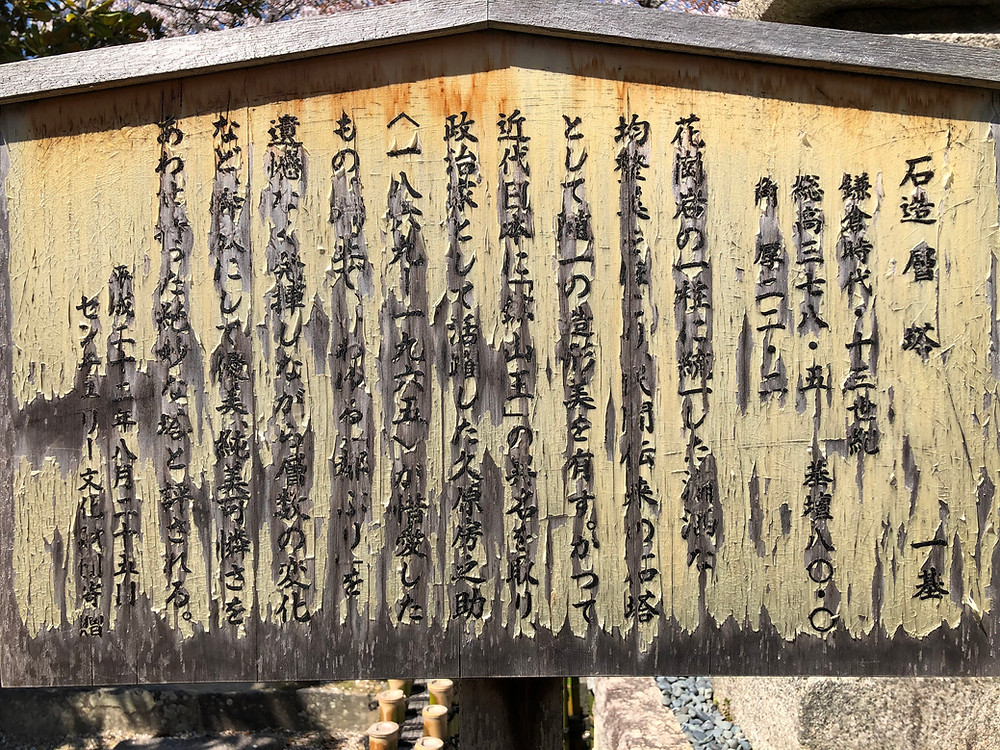 石造層塔 一基
鎌倉時代・十三世紀
総高三七八・五 基壇八〇・〇
角 厚二二・二
花崗岩の一種に統一した瀟洒な
均整美に 伝来の石塔
として随一の造形美を有す。かつて
近代日本に「鉱山王」の異名を取り
政治家として活躍した久原房之助
(一八六九ー一九六五)が惜愛した
もの いわゆる をを
遺憾なく発揮しながら層数の変化
など にして優美、純美可憐さを
あわせ持った絶妙な塔と評される。
平成二十三年八月二十五日
センチュリー文化財団寄贈